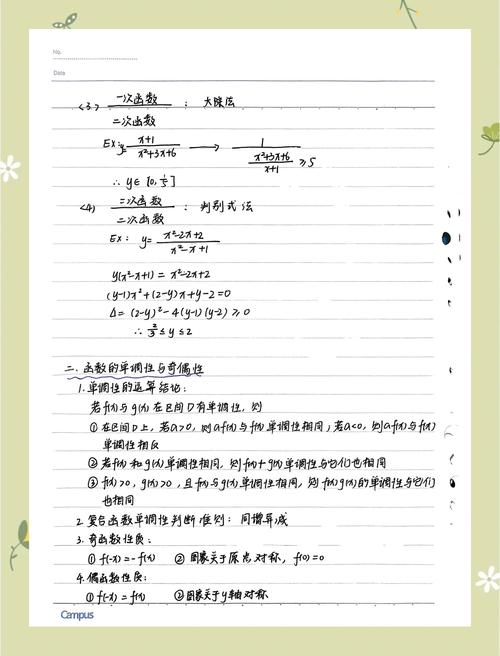 No.
Data
<3> 一次函数/二次函数 : 大除法
Ex: y= (x+1)/(x²+3x+6) → 1/((x²+3x+6)/(x+1)) ≥5
∴ y∈[0, 1/5]
<4) 二次函数/二次函数 : 判别式法
Ex: y= (x²-2x+2)/(x²-x+1)
y(x²-x+1) = x²-2x+2
(y-1)x²+(2-y)x+y-2=0
Δ= (2-y)²-4(y-1)(y-2) ≥0
∴ 2/3 ≤ y ≤ 2
二. 函数的单调性与奇偶性
1. 单调性的运算结论:
若f(x)与g(x)在区间D有单调性, 则
①在区间D上, 若a>0, 则af(x)与f(x)单调性相同; 若a<0, 则af(x)与f(x)
单调性相反
②若f(x)和g(x)单调性相同, 则f(x)+g(x)单调性与它们也相同
③f(x)>0, g(x)>0, 且f(x)与g(x)单调性相同, 则f(x)g(x)的单调性与它们
也相同
2. 复合函数单调性判断准则: 同增异减
3. 奇函数性质:
①f(-x)=-f(x) ②图象关于原点对称, f(0)=0
4. 偶函数性质:
①f(-x)=f(x) ②图象关于y轴对称
Campus